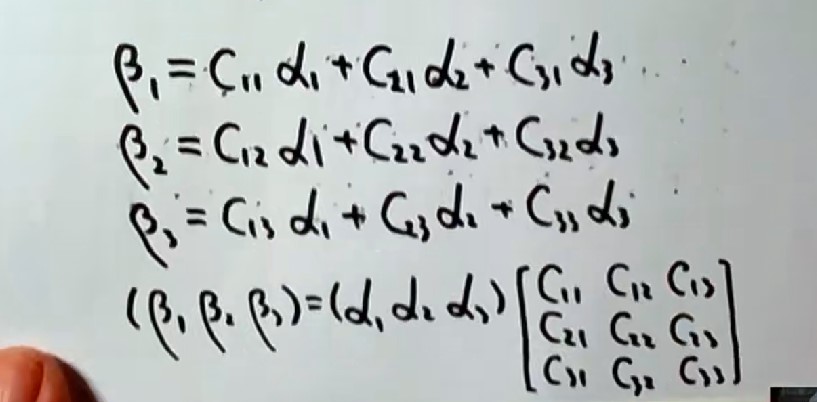 β₁ = C₁₁ α₁ + C₂₁ α₂ + C₃₁ α₃
β₂ = C₁₂ α₁ + C₂₂ α₂ + C₃₂ α₃
β₃ = C₁₃ α₁ + C₂₃ α₂ + C₃₃ α₃
(β₁ β₂ β₃) = (α₁ α₂ α₃) [C₁₁ C₁₂ C₁₃
C₂₁ C₂₂ C₂₃
C₃₁ C₃₂ C₃₃]